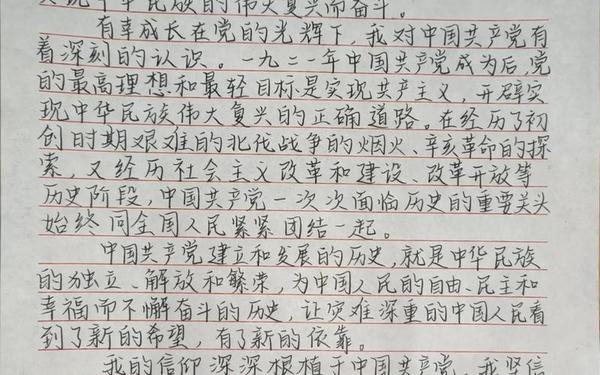 实现中华民族的伟大复兴而奋斗。
有幸成长在党的光辉下,我对中国共产党有
着深刻的认识。一九二一年中国共产党成为后,党
的最高理想和最轻目标是实现共产主义,开辟实
现中华民族伟大复兴的正确道路。在经历了初
创时期艰难的北伐战争的烟火、辛亥革命的探
索,又经历社会主义改革和建设、改革开放等
历史阶段,中国共产党一次次面临历史的重要关头
始终同全国人民紧紧团结一起。
中国共产党建立和发展的历史,就是中华民族
的独立、解放和繁荣,为中国人民的自由、民主和
幸福而不懈奋斗的历史,让灾难深重的中国人民看
到了新的希望,有了新的依靠。
我的信仰深深根植于中国共产党,我坚信